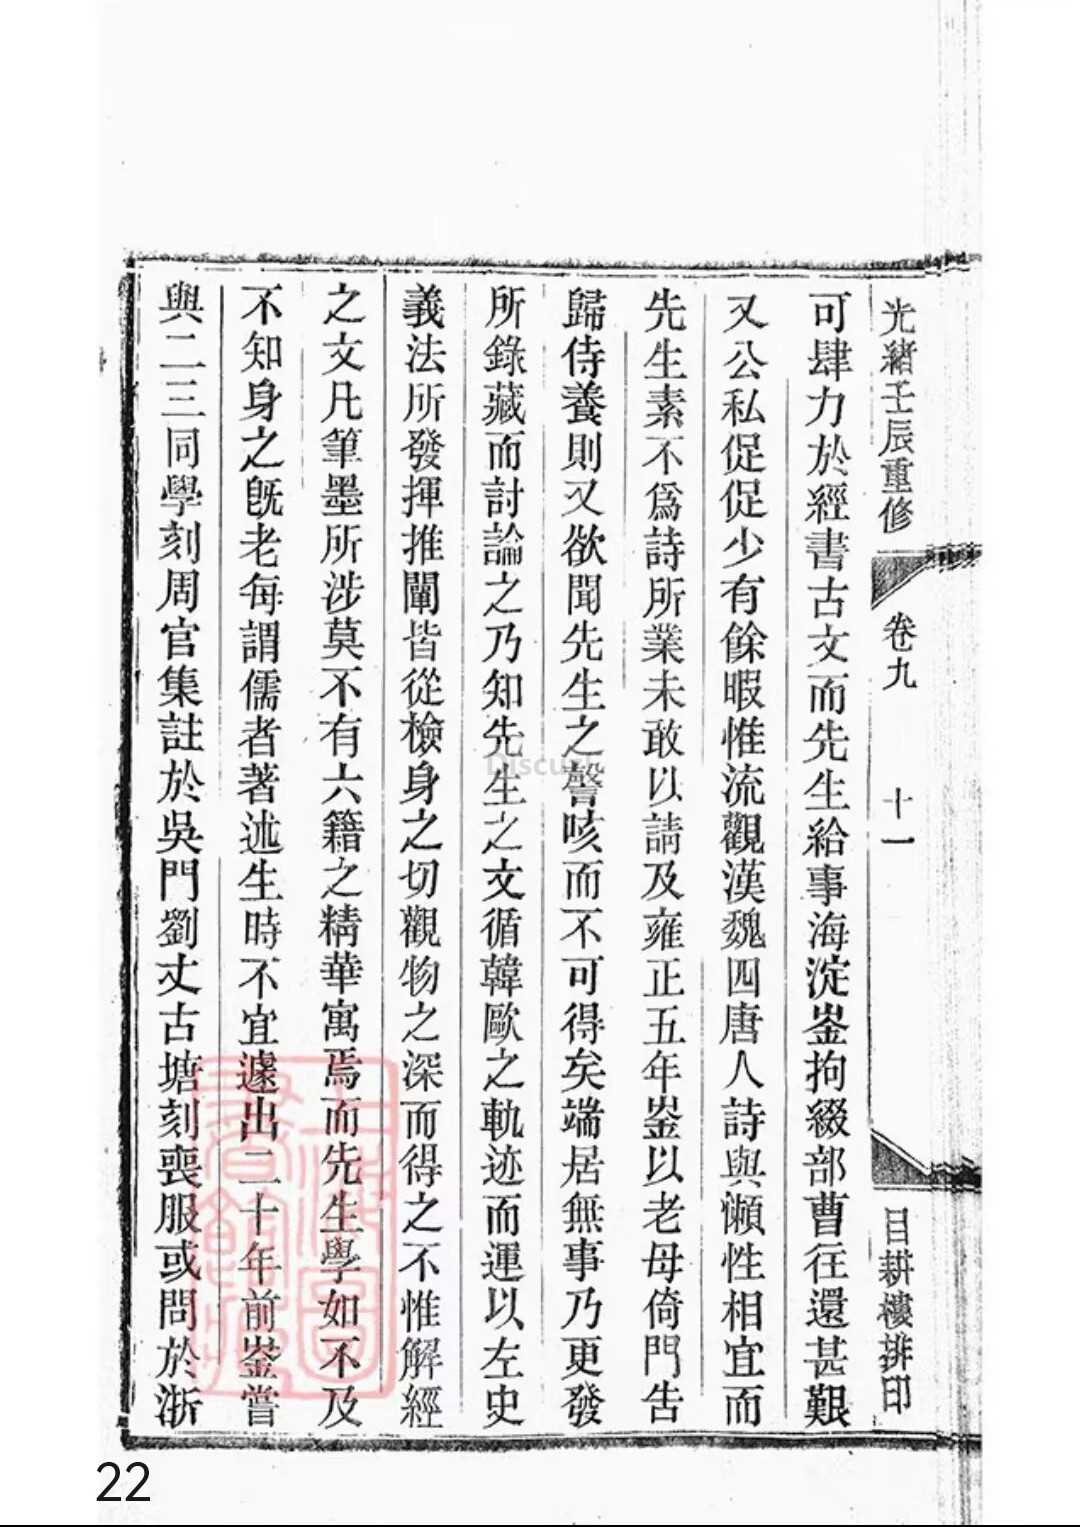 光緒壬辰重修
卷九
十一
目耕樓排印
可肆力於經書古文而先生給事海淀崟拘綴部曹往還甚艱
又公私促促少有餘暇惟流觀漢魏四唐人詩與懶性相宜而
先生素不爲詩所業未敢以請及雍正五年崟以老母倚門告
歸侍養則又欲聞先生之謦咳而不可得矣端居無事乃更發
所錄藏而討論之乃知先生之文循韓歐之軌迹而運以左史
義法所發揮推闡皆從檢身之切觀物之深而得之不惟解經
之文凡筆墨所涉莫不有六籍之精華寓焉而先生學如不及
不知身之旣老每謂儒者著述生時不宜遽出二十年前崟嘗
與二三同學刻周官集註於吳門劉丈古塘刻喪服或問於浙
Discuz!
上海圖
書館藏
22